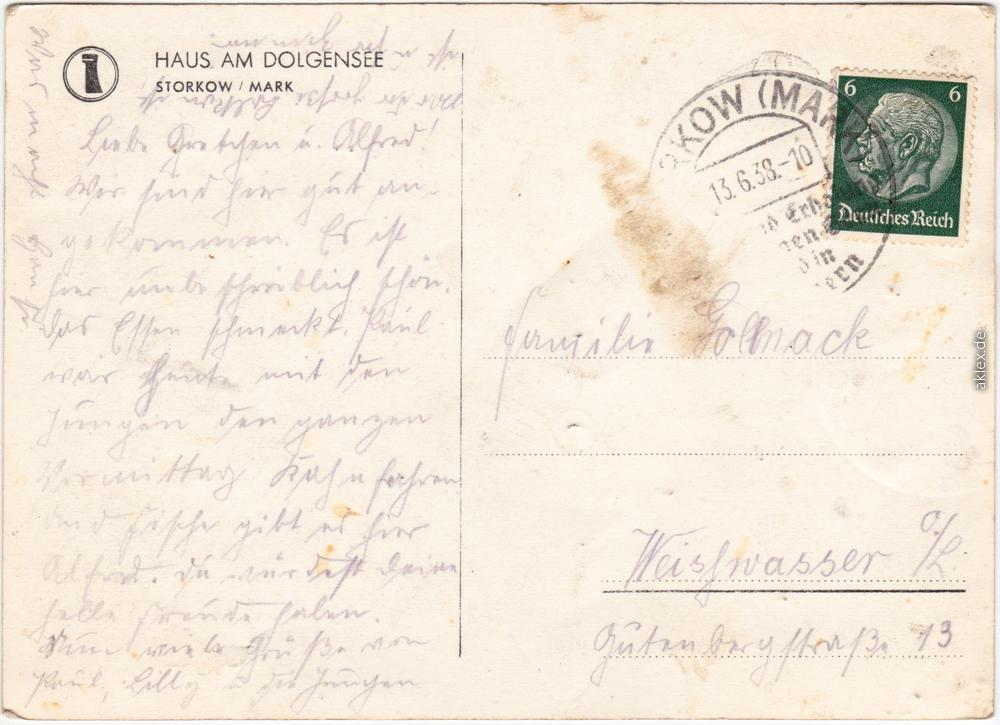 HAUS AM DOLGENSEE
STORKOW / MARK
Liebe Gretchen u. Alfred!
Wir sind hier gut an-
gekommen. Es ist
hier unbeschreiblich schön.
Das Essen schmeckt. Paul
war heute mit den
Jungen den ganzen
Vormittag Kahn fahren
Und Fische gibt es hier
Alfred. Du würdest Deine
helle Freude haben.
Nun viele Grüße von
Paul, Lilly u die Jungen
RKOW (MARK)
13.6.38.-10
6 6
Deutsches Reich
Familie Gollnack
Weishwasser O/L.
Gutenbergstraße 13
aklex.de